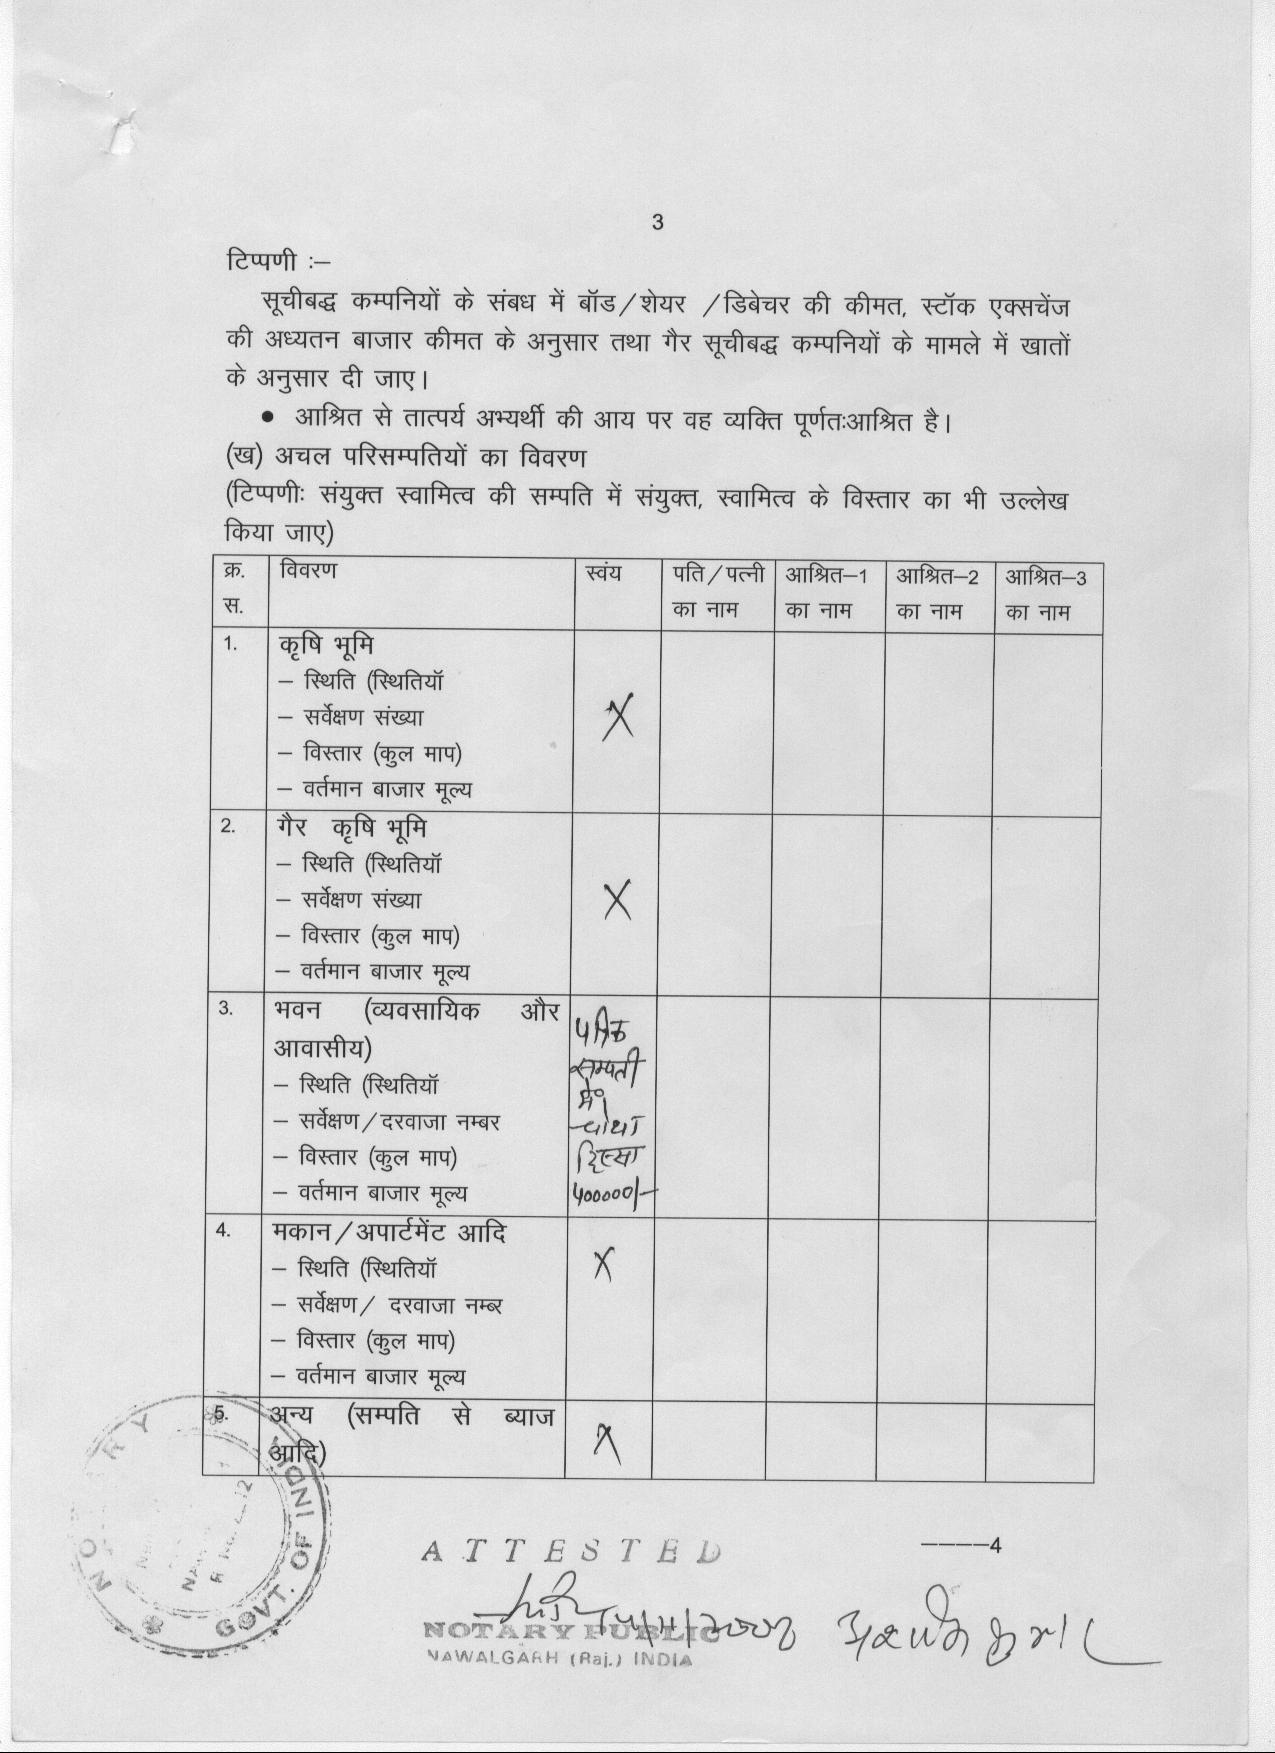 3
टिप्पणी :–
सूचीबद्ध कम्पनियों के संबध में बॉड/शेयर /डिबेचर की कीमत, स्टॉक एक्सचेंज
की अध्यतन बाजार कीमत के अनुसार तथा गैर सूचीबद्ध कम्पनियों के मामले में खातों
के अनुसार दी जाए।
• आश्रित से तात्पर्य अभ्यर्थी की आय पर वह व्यक्ति पूर्णतःआश्रित है।
(ख) अचल परिसम्पतियों का विवरण
(टिप्पणीः संयुक्त स्वामित्व की सम्पति में संयुक्त, स्वामित्व के विस्तार का भी उल्लेख
किया जाए)
क्र. स. विवरण स्वंय पति/पत्नी का नाम आश्रित–1 का नाम आश्रित–2 का नाम आश्रित–3 का नाम
1. कृषि भूमि
– स्थिति (स्थितियॉ
– सर्वेक्षण संख्या X
– विस्तार (कुल माप)
– वर्तमान बाजार मूल्य
2. गैर कृषि भूमि
– स्थिति (स्थितियॉ
– सर्वेक्षण संख्या X
– विस्तार (कुल माप)
– वर्तमान बाजार मूल्य
3. भवन (व्यवसायिक और
आवासीय)
– स्थिति (स्थितियॉ
– सर्वेक्षण/दरवाजा नम्बर
– विस्तार (कुल माप)
– वर्तमान बाजार मूल्य
सम्पती
में
चौथा
हिस्सा
400000/–
4. मकान/अपार्टमेंट आदि
– स्थिति (स्थितियॉ X
– सर्वेक्षण/ दरवाजा नम्बर
– विस्तार (कुल माप)
– वर्तमान बाजार मूल्य
5. अन्य (सम्पति से ब्याज
आदि) X
––––4
ATTESTED
NOTARY PUBLIC
NAWALGARH (Raj.) INDIA
NOTARY
GOVT. OF INDIA